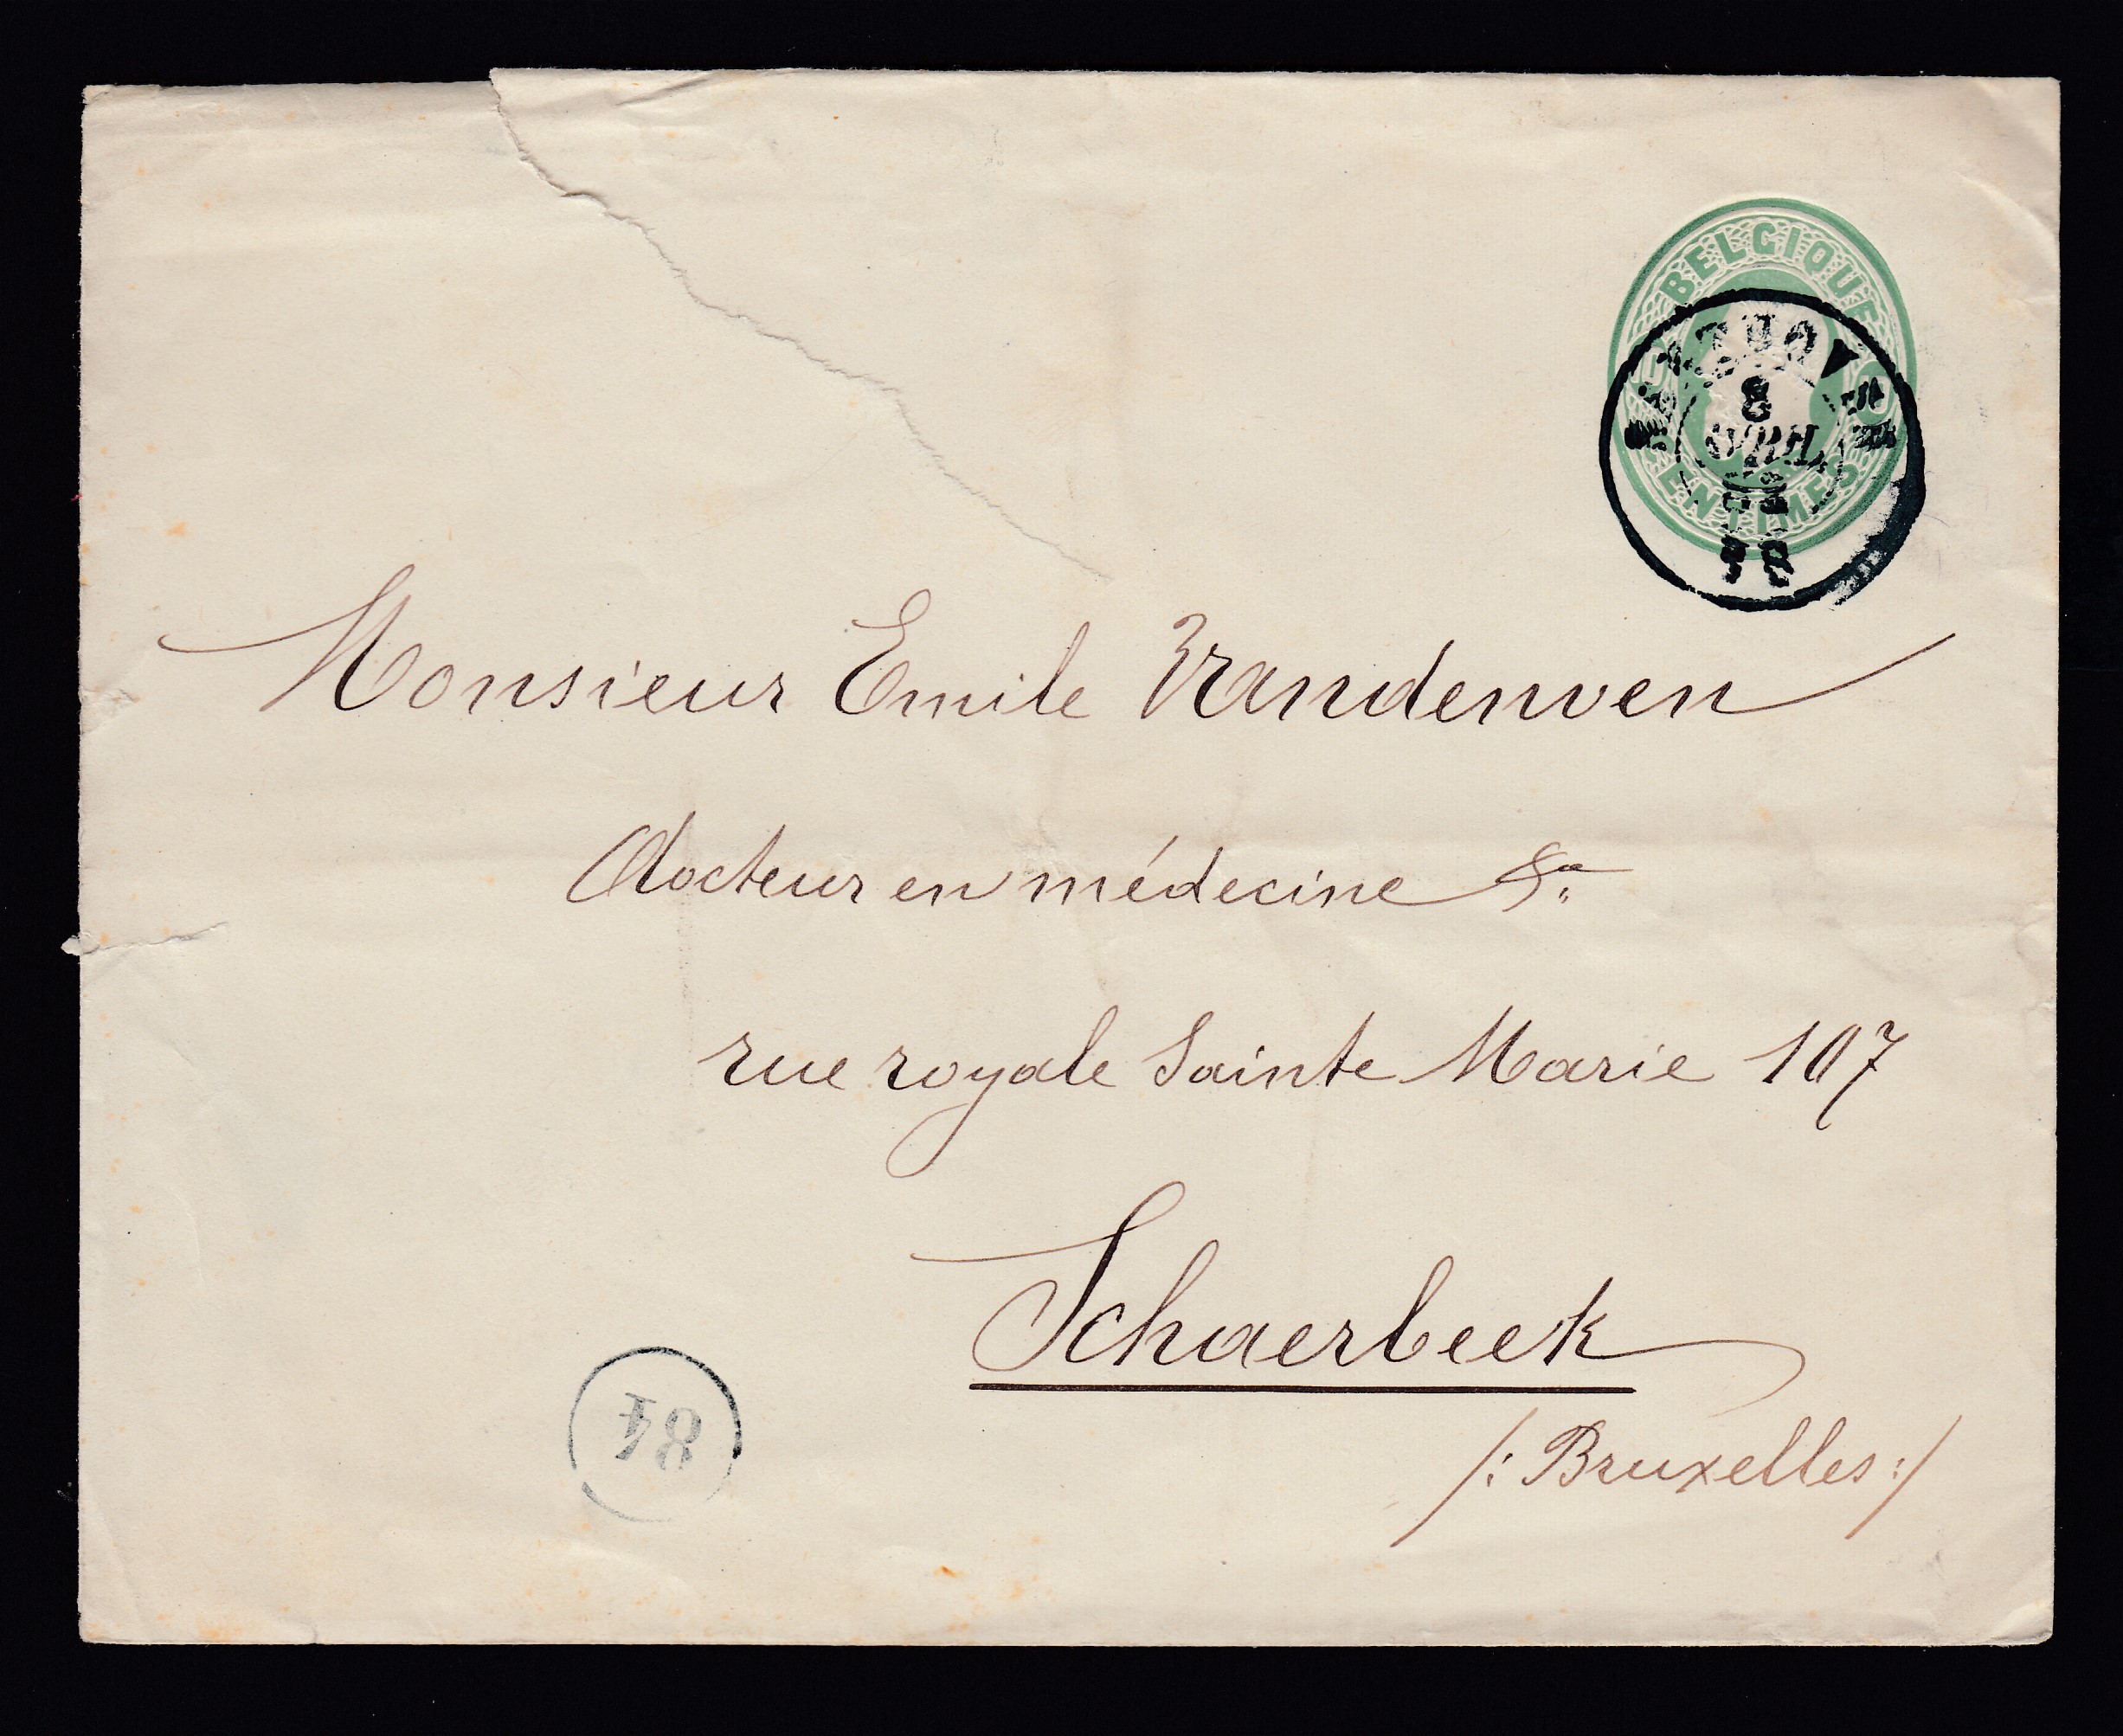 BELGIQUE
CENTIMES
8
AVRIL
Monsieur Emile Vrandenven
docteur en médecine
rue royale Sainte Marie 107
Schaerbeek
/: Bruxelles :/
84